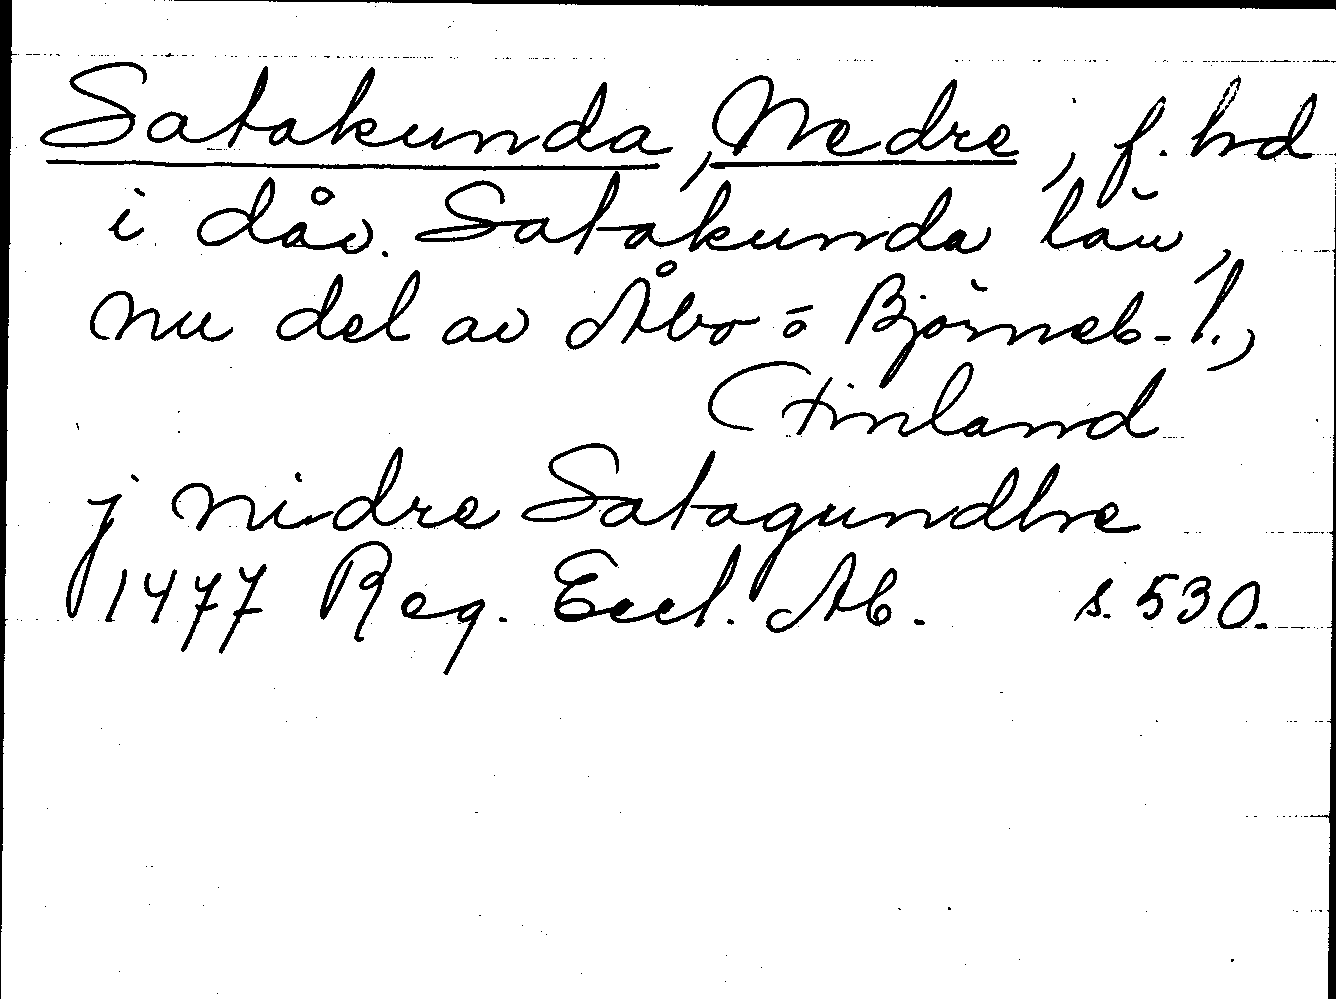 Satakunda, Nedre, f. hd
i dåv. Satakunda län,
nu del av Åbo o Björneb. l.,
Finland
j nidre Satagundhe
1477 Reg. Eccl. Ab. s. 530.